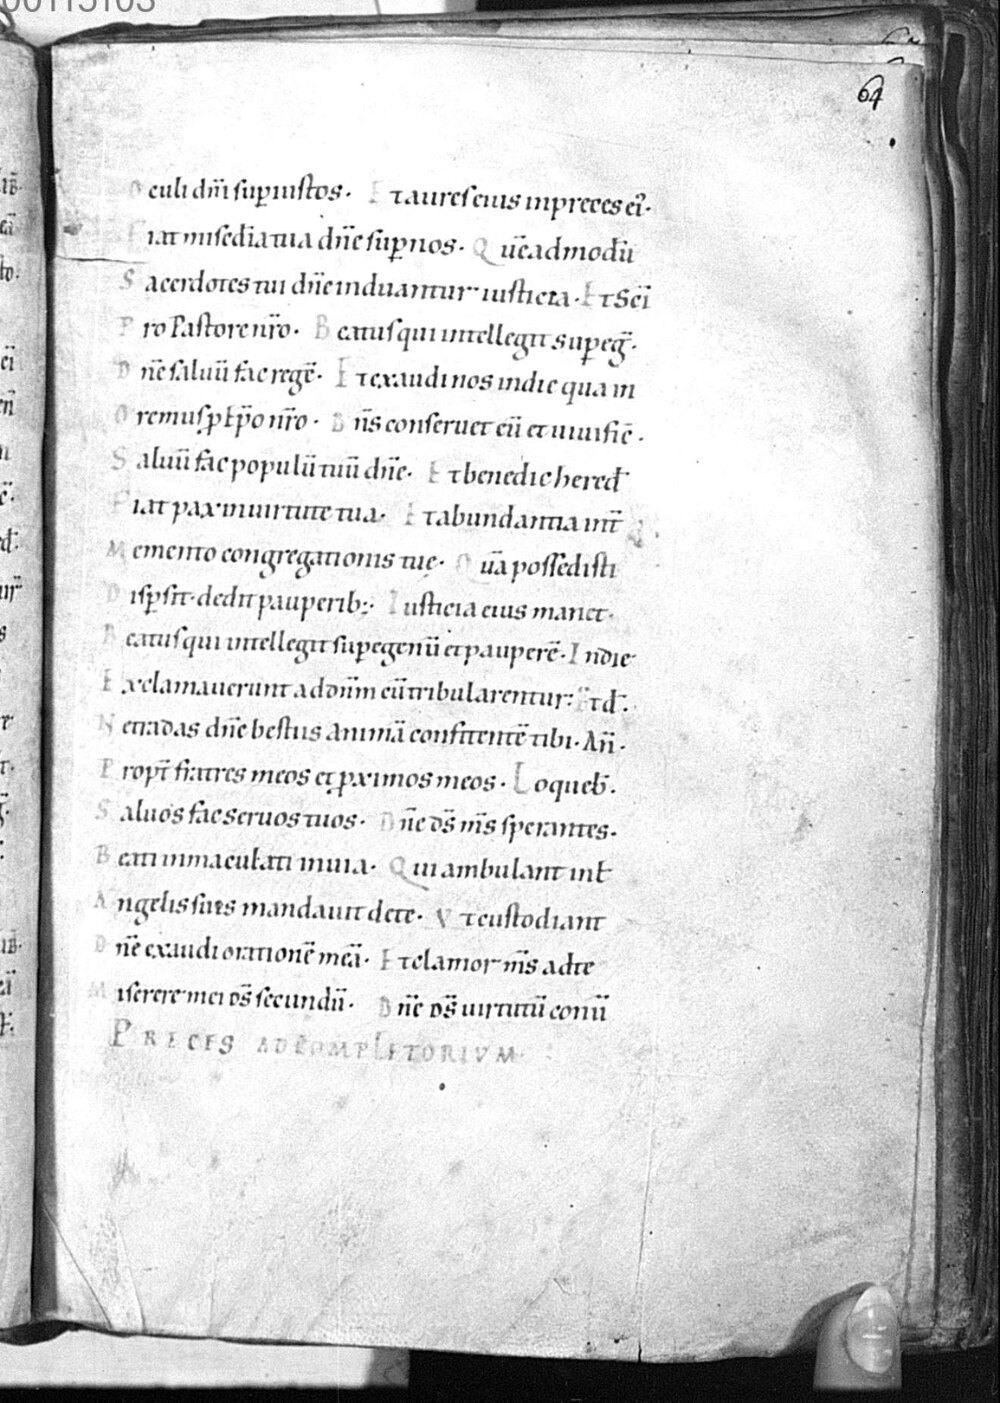 00115103
64
Oculi dn̄i sup iustos. Et aures eius in preces eī.
Fiat miscd̄ia tua dn̄e sup nos. Quēadmodū
Sacerdotes tui dn̄e induantur iusticia. Et Scī
Pro Pastore nr̄o. Beatus qui intellegit sup eḡ.
Dn̄e saluū fac regē. Et exaudi nos in die qua in
Oremus p Ep̄o nr̄o. Dn̄s conseruet eū et uiuific̄.
Saluū fac populū tuū dn̄e. Et benedic hered̄
Fiat pax in uirtute tua. Et abundantia int̄
Memento congregationis tuę. Quā possedisti
Dispsit dedit pauperib;. Iusticia eius manet.
Beatus qui intellegit sup egenū et pauperē. In die
Exclamauerunt ad dn̄m cū tribularentur. Et d̄.
Ne tradas dn̄e bestiis animā confitentē tibi. An̄.
Propt̄ fratres meos et pximos meos. Loqueb̄.
Saluos fac seruos tuos. Dn̄e ds̄ ms̄ sperantes.
Beati inmaculati in uia. Qui ambulant in l̄
Angelis suis mandauit de te. Vt custodiant
Dn̄e exaudi orationē meā. Et clamor ms̄ ad te
Miserere mei ds̄ secundū. Dn̄e ds̄ uirtutū conū
PRECES AD COMPLETORIVM